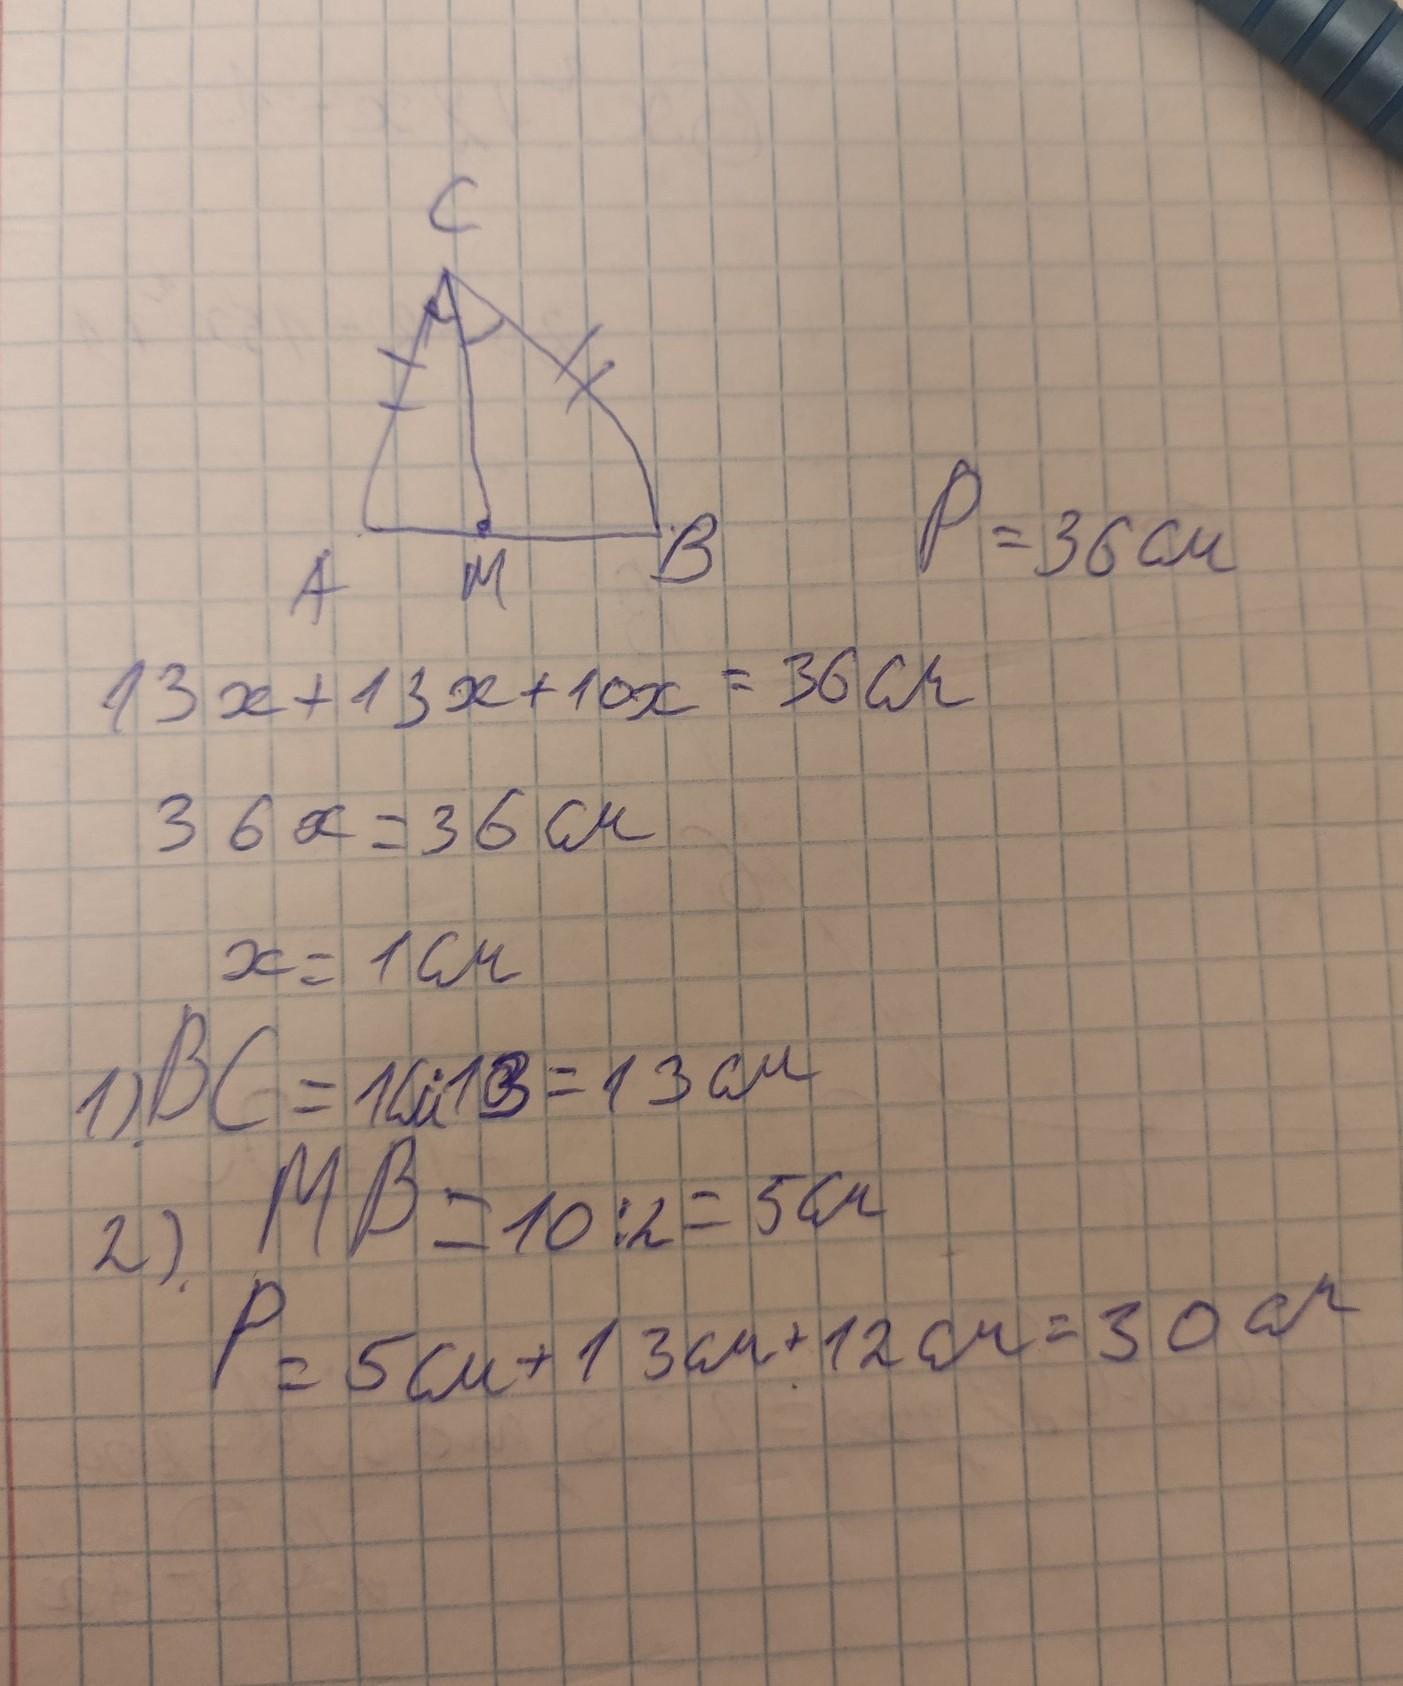 C
A M B
P = 36 см
13x + 13x + 10x = 36 см
36x = 36 см
x = 1 см
1). BC = 1см·13 = 13 см
2). MB = 10:2 = 5 см
P = 5 см + 13 см + 12 см = 30 см